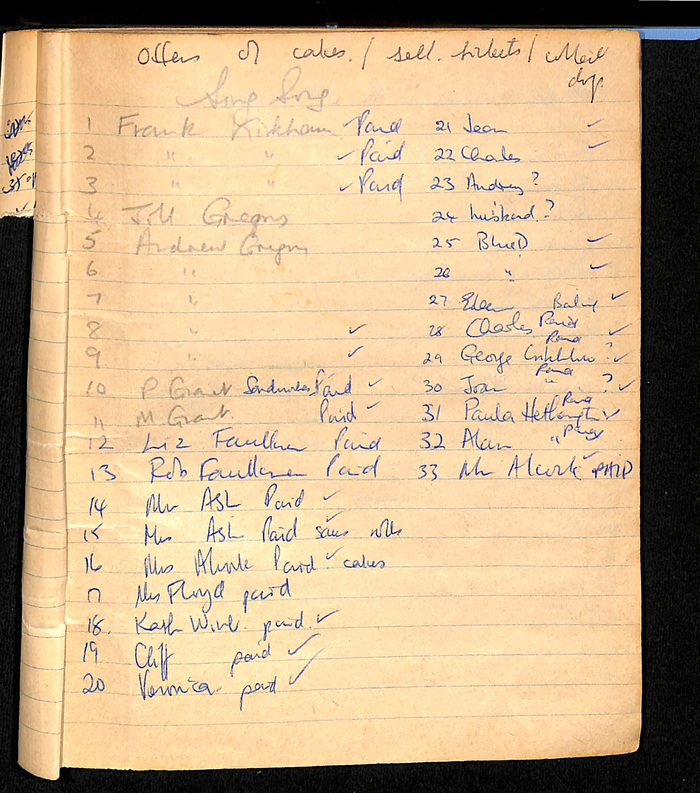 Offers of cakes. / sell. tickets / Mail
drop
Sing Song
1 Frank Kirkham ✓ Paid
2 " " ✓ Paid
3 " " ✓ Paid
4 Jill Gregory
5 Andrew Gregory
6 "
7 "
8 " ✓
9 " ✓
10 P Grant Sandwiches Paid ✓
11 M Grant. Paid ✓
12 Liz Faulkner Paid
13 Rob Faulkner Paid
14 Mr Ash Paid ✓
15 Mrs Ash Paid saus rolls
16 Mrs Alcock Paid ✓ cakes
17 Mrs Floyd paid
18. Kath paid. ✓
19 Cliff paid ✓
20 Veronica. paid ✓
21 Jean ✓
22 Charles ✓
23 Audrey?
24 husband.?
25 ✓
26 " ✓
27 ✓
28 Charles Paid ✓
29 George Paid ? ✓
30 Joan " Paid ? ✓
31 Paula Paid ✓
32 Alan "
33 Mr Alcock PAID